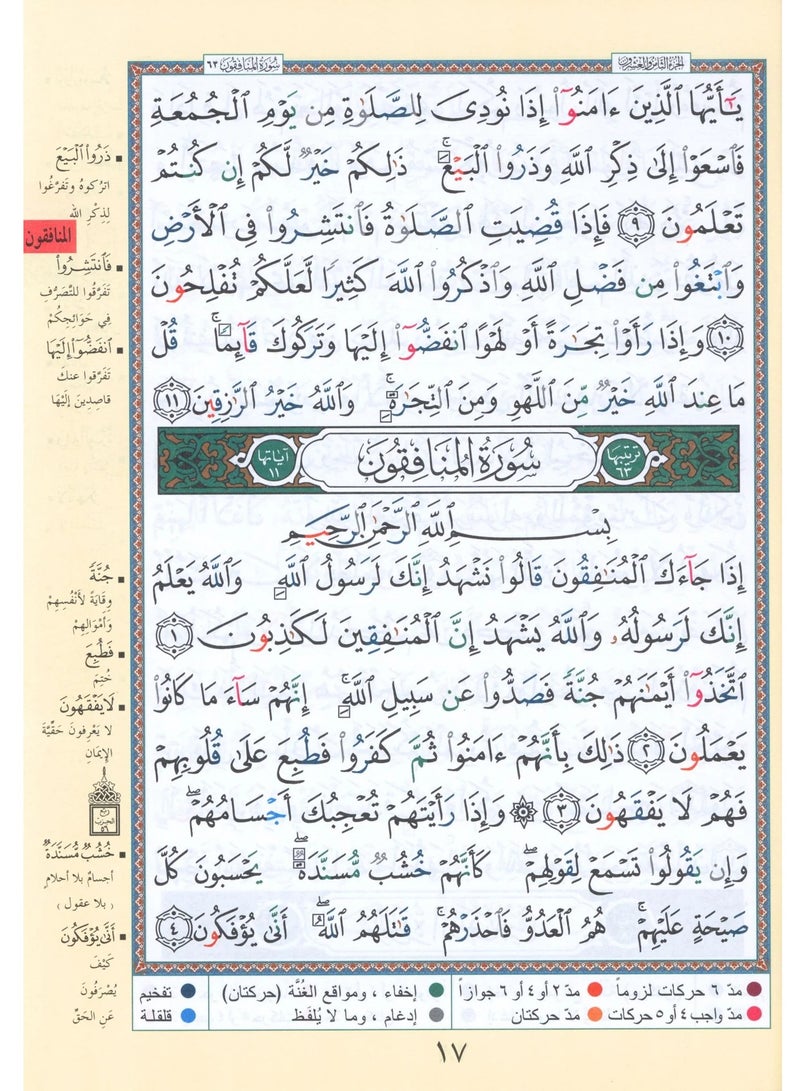 الجزء الثامن والعشرون
سورة المنافقون ٦٣
يَٰٓأَيُّهَا ٱلَّذِينَ ءَامَنُوٓا۟ إِذَا نُودِىَ لِلصَّلَوٰةِ مِن يَوْمِ ٱلْجُمُعَةِ
فَٱسْعَوْا۟ إِلَىٰ ذِكْرِ ٱللَّهِ وَذَرُوا۟ ٱلْبَيْعَ ۚ ذَٰلِكُمْ خَيْرٌ لَّكُمْ إِن كُنتُمْ
تَعْلَمُونَ ٩ فَإِذَا قُضِيَتِ ٱلصَّلَوٰةُ فَٱنتَشِرُوا۟ فِى ٱلْأَرْضِ
وَٱبْتَغُوا۟ مِن فَضْلِ ٱللَّهِ وَٱذْكُرُوا۟ ٱللَّهَ كَثِيرًا لَّعَلَّكُمْ تُفْلِحُونَ
١٠ وَإِذَا رَأَوْا۟ تِجَٰرَةً أَوْ لَهْوًا ٱنفَضُّوٓا۟ إِلَيْهَا وَتَرَكُوكَ قَآئِمًا ۚ قُلْ
مَا عِندَ ٱللَّهِ خَيْرٌ مِّنَ ٱللَّهْوِ وَمِنَ ٱلتِّجَٰرَةِ ۚ وَٱللَّهُ خَيْرُ ٱلرَّٰزِقِينَ ١١
ترتيبها ٦٣ سُورَةُ المُنَافِقُونَ آياتها ١١
بِسْمِ ٱللَّهِ ٱلرَّحْمَٰنِ ٱلرَّحِيمِ
إِذَا جَآءَكَ ٱلْمُنَٰفِقُونَ قَالُوا۟ نَشْهَدُ إِنَّكَ لَرَسُولُ ٱللَّهِ ۗ وَٱللَّهُ يَعْلَمُ
إِنَّكَ لَرَسُولُهُۥ وَٱللَّهُ يَشْهَدُ إِنَّ ٱلْمُنَٰفِقِينَ لَكَٰذِبُونَ ١
ٱتَّخَذُوٓا۟ أَيْمَٰنَهُمْ جُنَّةً فَصَدُّوا۟ عَن سَبِيلِ ٱللَّهِ ۚ إِنَّهُمْ سَآءَ مَا كَانُوا۟
يَعْمَلُونَ ٢ ذَٰلِكَ بِأَنَّهُمْ ءَامَنُوا۟ ثُمَّ كَفَرُوا۟ فَطُبِعَ عَلَىٰ قُلُوبِهِمْ
فَهُمْ لَا يَفْقَهُونَ ٣ ۞ وَإِذَا رَأَيْتَهُمْ تُعْجِبُكَ أَجْسَامُهُمْ ۖ
وَإِن يَقُولُوا۟ تَسْمَعْ لِقَوْلِهِمْ ۖ كَأَنَّهُمْ خُشُبٌ مُّسَنَّدَةٌ ۖ يَحْسَبُونَ كُلَّ
صَيْحَةٍ عَلَيْهِمْ ۚ هُمُ ٱلْعَدُوُّ فَٱحْذَرْهُمْ ۚ قَٰتَلَهُمُ ٱللَّهُ ۖ أَنَّىٰ يُؤْفَكُونَ ٤
■ ذَرُوا۟ ٱلْبَيْعَ
اتركوهُ وتفَرَّغُوا
لِذِكْرِ الله
المنافقون
■ فَٱنتَشِرُوا۟
تَفَرَّقُوا للتَّصَرُّفِ
فِي حَوَائِجِكُمْ
■ ٱنفَضُّوٓا۟ إِلَيْهَا
تَفَرَّقوا عنكَ
قاصِدينَ إلَيْهَا
■ جُنَّةً
وِقَايَةً لأنْفُسِهِمْ
وَأَمْوَالِهِمْ
■ فَطُبِعَ
خُتِمَ
■ لَا يَفْقَهُونَ
لا يَعْرِفونَ حَقِّيَّةَ
الإيمَانِ
ربع
الحزب
٥٦
■ خُشُبٌ مُّسَنَّدَةٌ
أجسامٌ بلا أحلامٍ
( بلا عقول )
■ أَنَّىٰ يُؤْفَكُونَ
كَيْفَ
يُصْرَفُونَ
عَنِ الحَقِّ
● مدّ ٦ حركات لزوماً ● مدّ ٢ أو ٤ أو ٦ جوازاً ● إخفاء ، ومواقع الغُنَّة (حركتان) ● تفخيم
● مدّ واجب ٤ أو ٥ حركات ● مدّ حركتان ● إدغام ، وما لا يُلفَظ ● قلقلة
١٧